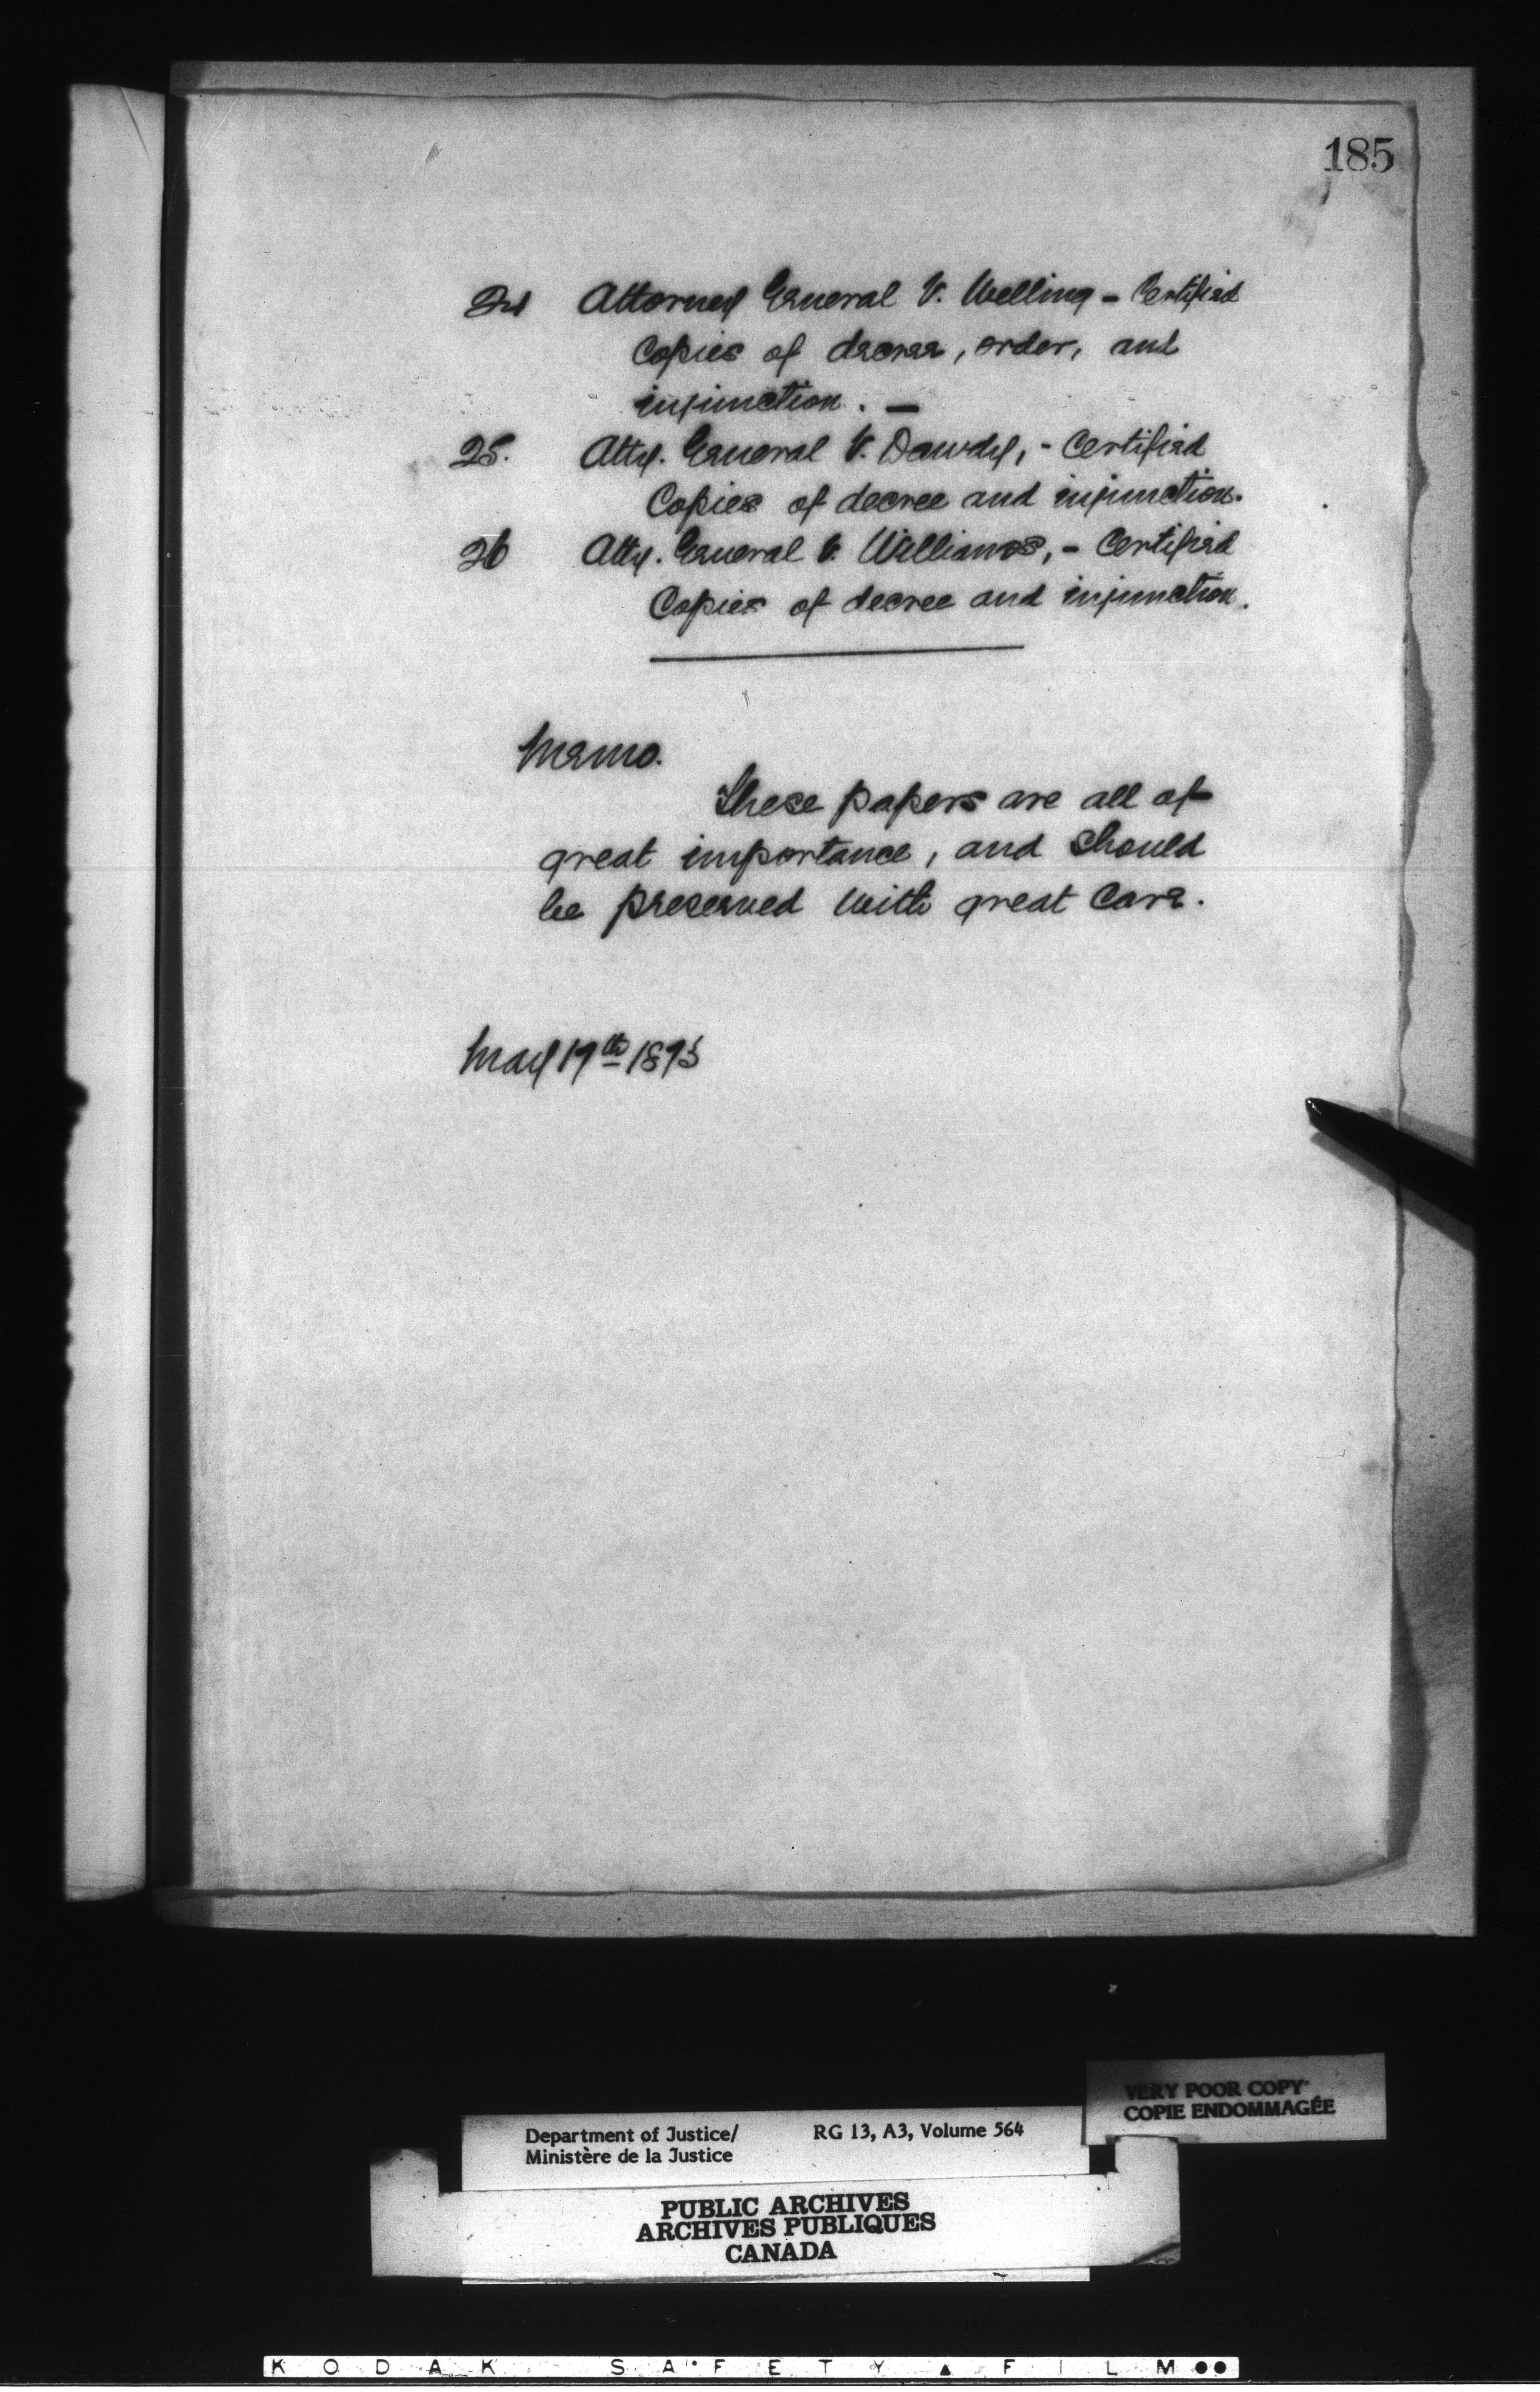 185
24 Attorney General V. Welling - Certified
Copies of decree, order, and
injunction. —
25. Atty. General V. Dowdy, - Certified
Copies of decree and injunction.
26 Atty. General V. Williams, - Certified
Copies of decree and injunction.
Memo.
These papers are all of
great importance, and should
be preserved with great care.
May 19th 1895
VERY POOR COPY
COPIE ENDOMMAGÉE
Department of Justice/ RG 13, A3, Volume 564
Ministère de la Justice
PUBLIC ARCHIVES
ARCHIVES PUBLIQUES
CANADA
KODAK SAFETY FILM